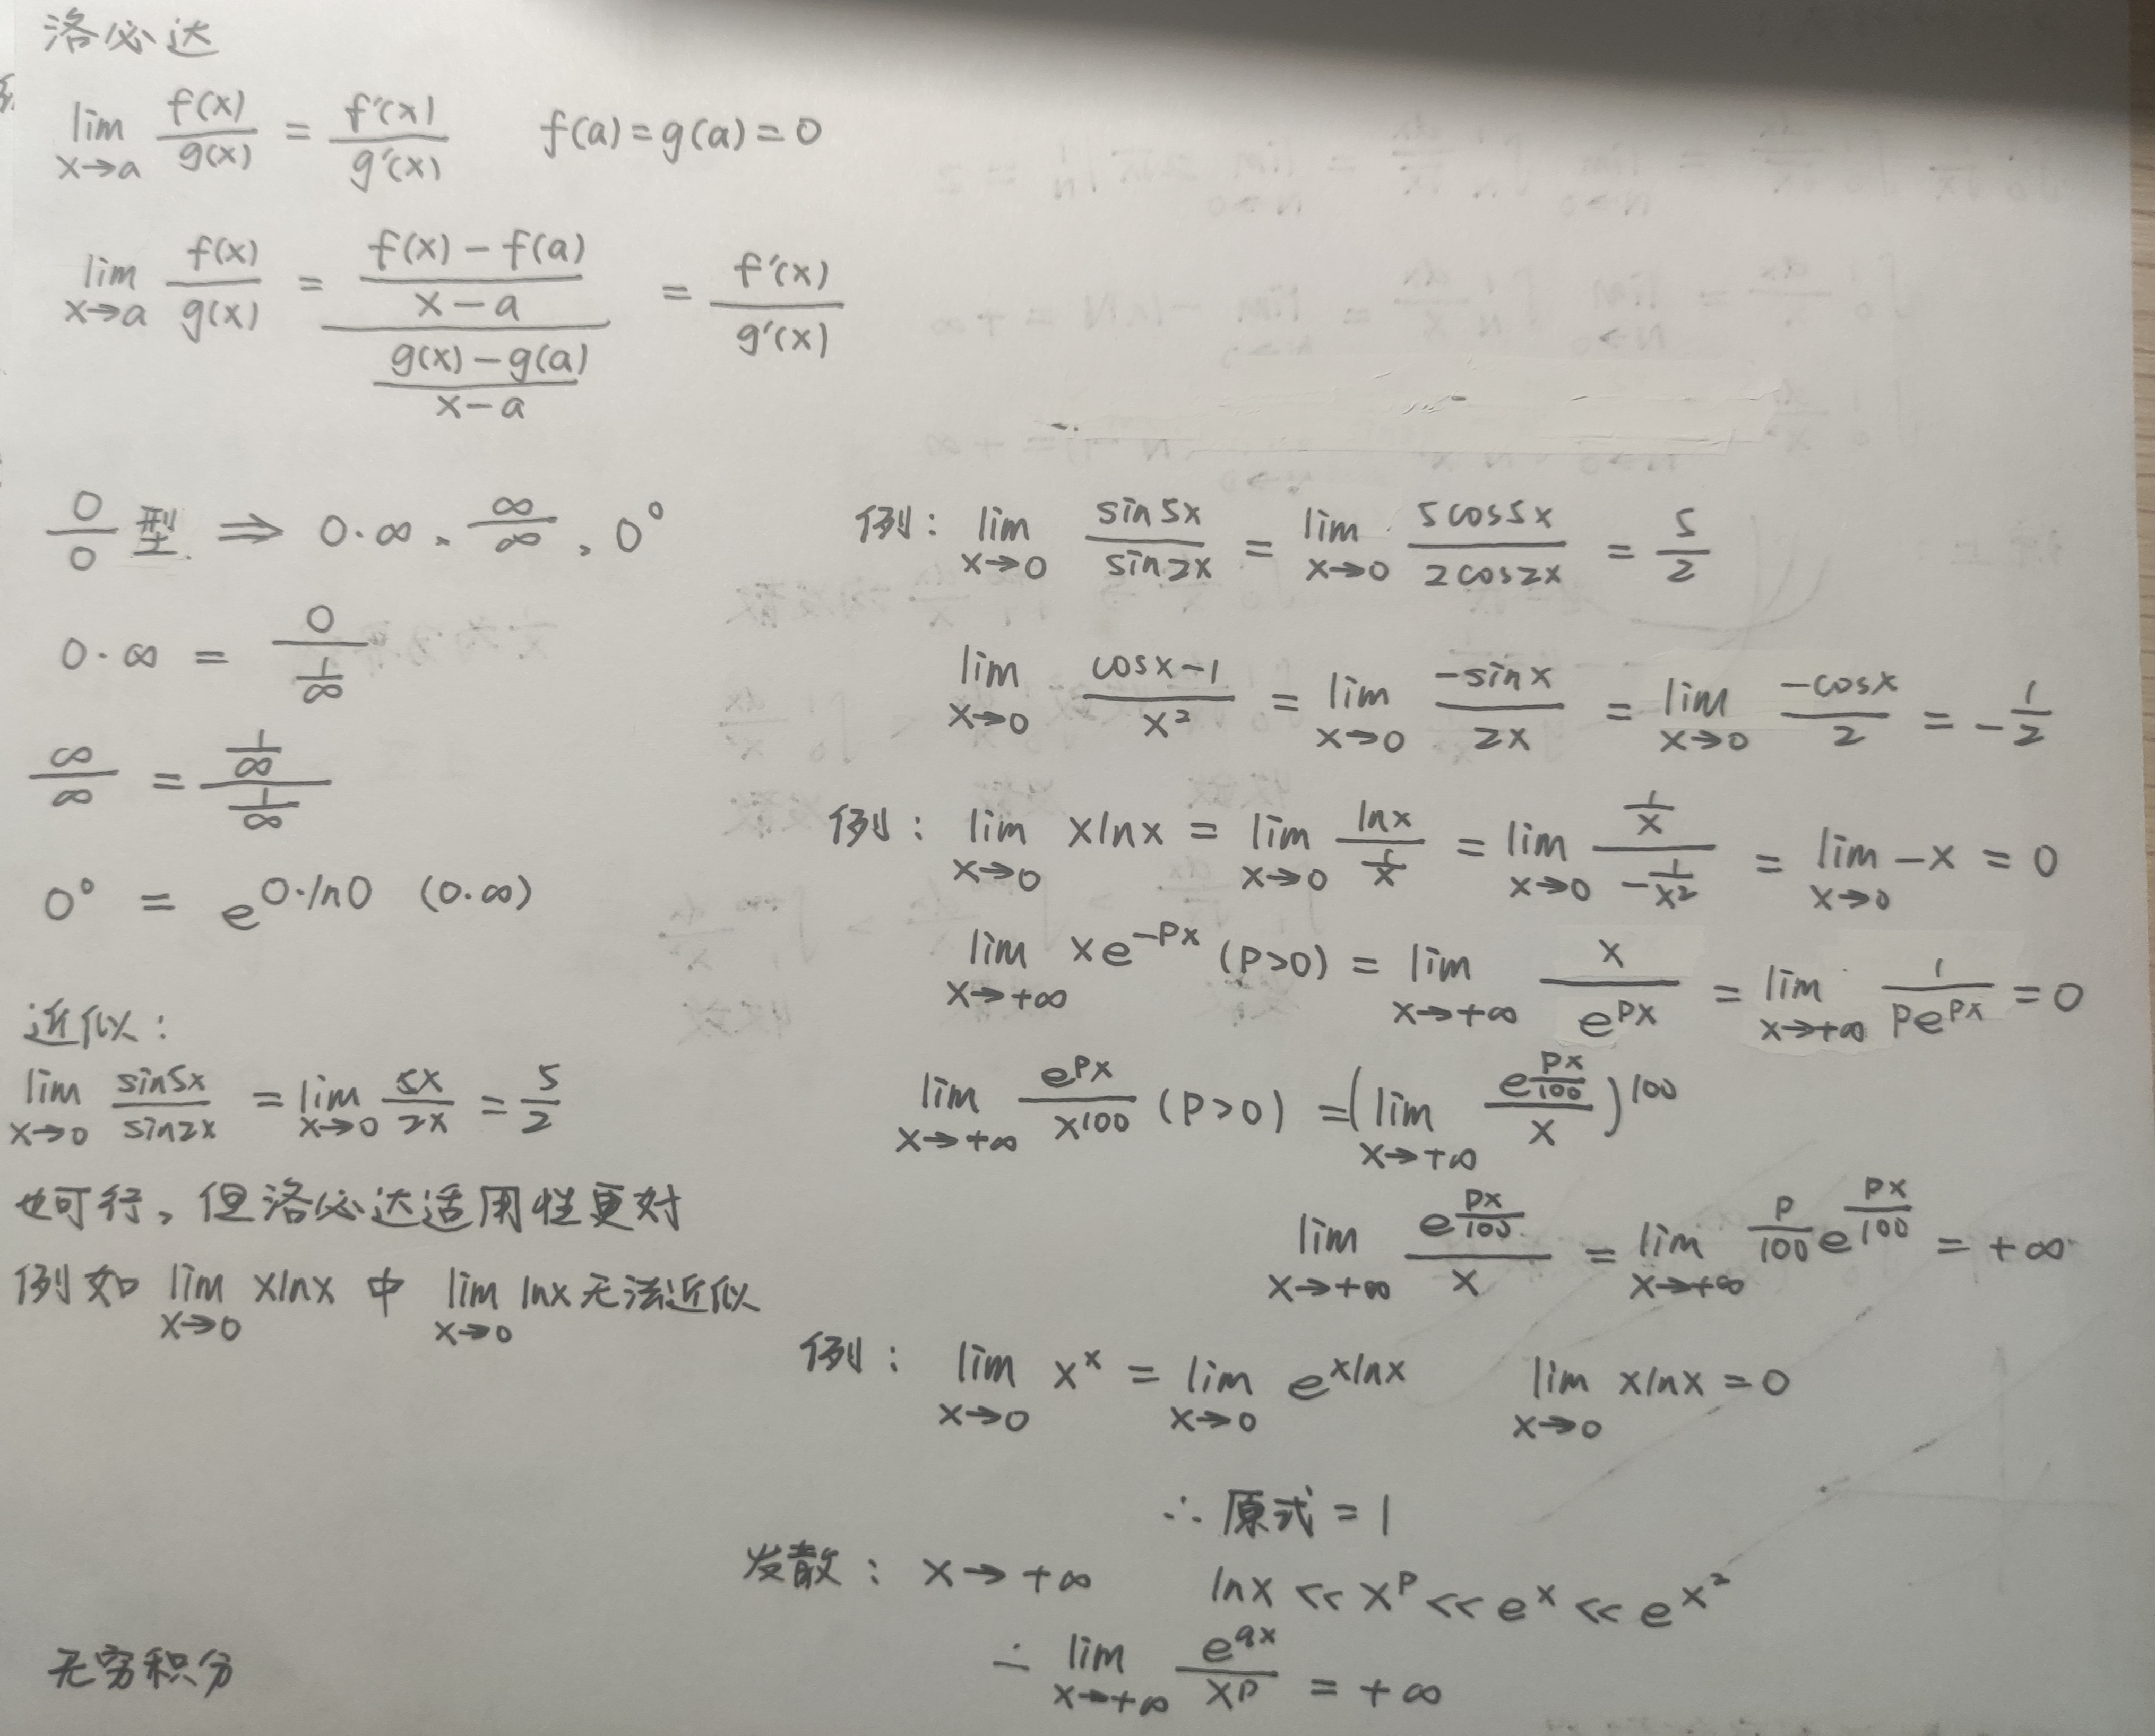 洛必达
lim x→a f(x)/g(x) = f'(x)/g'(x)   f(a)=g(a)=0
lim x→a f(x)/g(x) = ((f(x)-f(a))/(x-a))/((g(x)-g(a))/(x-a)) = f'(x)/g'(x)
0/0 型 ⇒ 0·∞、∞/∞、0⁰
0·∞ = 0/(1/∞)
∞/∞ = (1/∞)/(1/∞)
0⁰ = e^(0·ln0) (0·∞)
近似：
lim x→0 sin5x/sin2x = lim x→0 5x/2x = 5/2
也可行，但洛必达适用性更好
例如 lim x→0 xlnx 中 lim x→0 lnx 无法近似
无穷积分
例： lim x→0 sin5x/sin2x = lim x→0 5cos5x/2cos2x = 5/2
lim x→0 (cosx-1)/x² = lim x→0 -sinx/2x = lim x→0 -cosx/2 = -1/2
例： lim x→0 xlnx = lim x→0 lnx/(1/x) = lim x→0 (1/x)/(-1/x²) = lim x→0 -x = 0
lim x→+∞ xe^(-px) (p>0) = lim x→+∞ x/e^(px) = lim x→+∞ 1/(pe^(px)) = 0
lim x→+∞ e^(px)/x^100 (p>0) = (lim x→+∞ e^(px/100)/x)^100
lim x→+∞ e^(px/100)/x = lim x→+∞ p/100 e^(px/100) = +∞
例： lim x→0 x^x = lim x→0 e^(xlnx)   lim x→0 xlnx = 0
∴ 原式 = 1
发散： x→+∞   lnx << x^p << e^x << e^(x²)
∴ lim x→+∞ e^(qx)/x^p = +∞